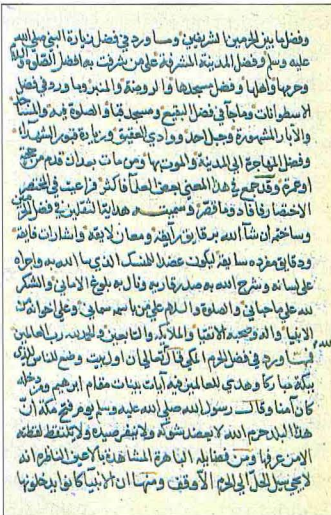 وفضل ما بين الحرمين الشريفين وما ورد في فضل زيارة النبي صلى الله
عليه وسلم وفضل المدينة المشرفة على من شرفت به افضل الصلوة
وحرمها واهلها وفضل مسجدها والروضة والمنبر وما ورد في فضل
الاسطوانات وما جآ في فضل البقيع ومسجد قبا والصلوة فيه والمساجد
والآبار المشهورة وجبل احد ووادي العقيق وزيارة قبور الشهدا
وفضل المهاجرة الى المدينة والموت بها ومن مات بعد ان قدم من حج
او عمرة وقد جمع في هذا المعنى جمع اجلا فاكثر فراعيت في المختصر
الاختصار وسميت هداية الثقلين في فضل الحرمين
وساختم ان شآ الله برقايق رايقة ومعان لايقة واشارات فايقة
ودقايق مفرده سابقة ليكون عضد المنسك الذي سآ الله به واجراه
على لسانه وشرح الله به صدر قاريه وناله به بلوغ الاماني والشكر
لله على ما حباني والصلوة والسلام على من باسمه سماني وعلى اخوانه من
الانبيا واله وصحبه الاتقيا والملايكة والتابعين والحمد لله رب العالمين
ما ورد في فضل الحرم المكي قال تعالى ان اول بيت وضع للناس للذي
ببكة مباركا وهدى للعالمين فيه آيات بينات مقام ابراهيم ومن دخله
كان آمنا وقال رسول الله صلى الله عليه وسلم يوم فتح مكة ان
هذا البلد حرم الله لا يعضد شوكه ولا ينفر صيده ولا يلتقط لقطته
الا من عرفها ومن فضايله الباهرة المشاهدة بالاعين الناظرة انه
لا يجي سيل الحل الى الحرم الا وقف ومنها ان الانبيآ كانوا يدخلونها